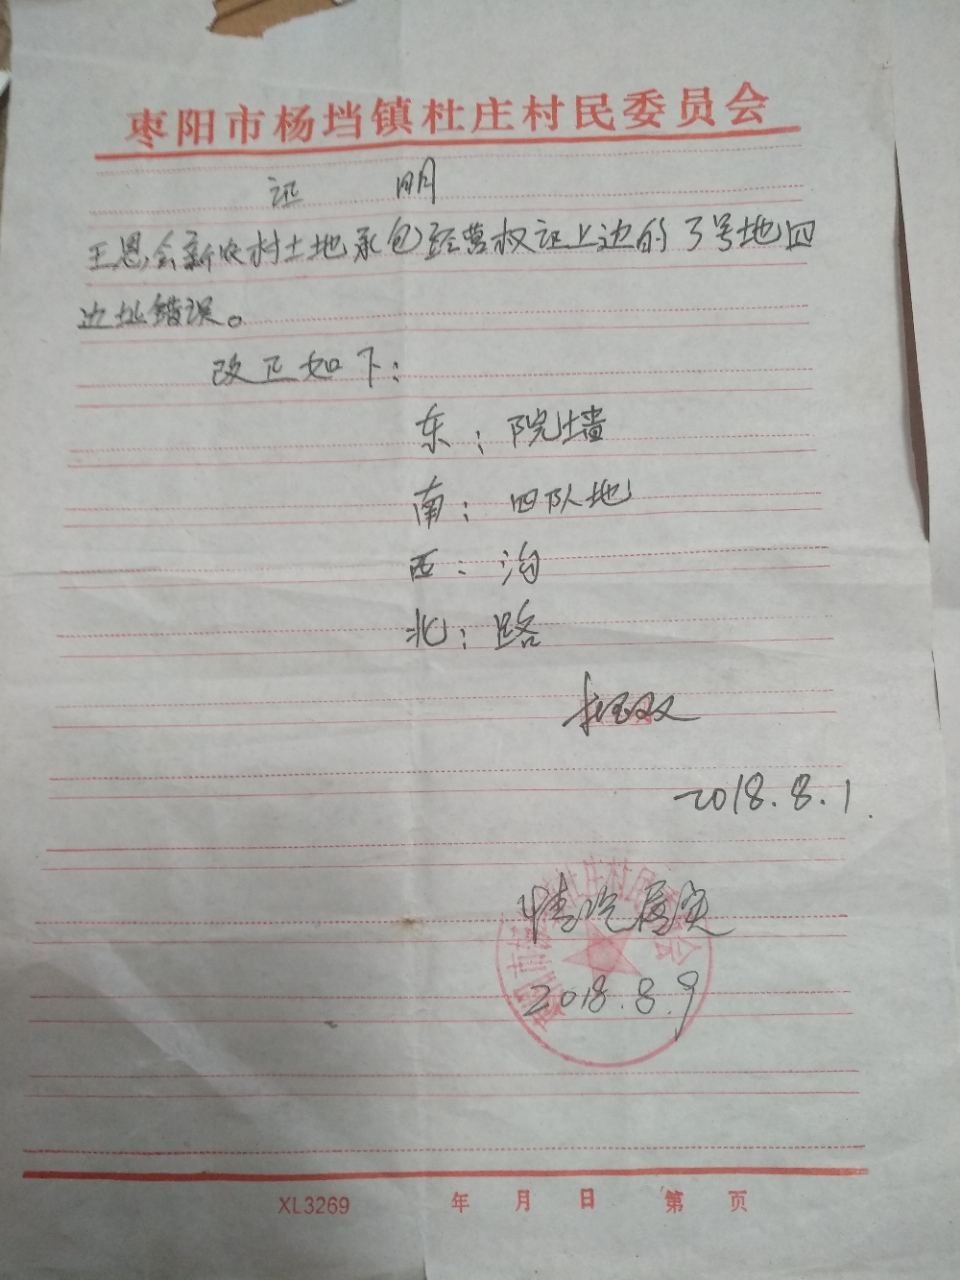 枣阳市杨垱镇杜庄村民委员会
证 明
王恩会新农村土地承包经营权证上边的3号地四
边址错误。
改正如下：
东：院墙
南：四队地
西：沟
北：路
2018.8.1
情况属实
2018.8.9
XL3269 年 月 日 第 页